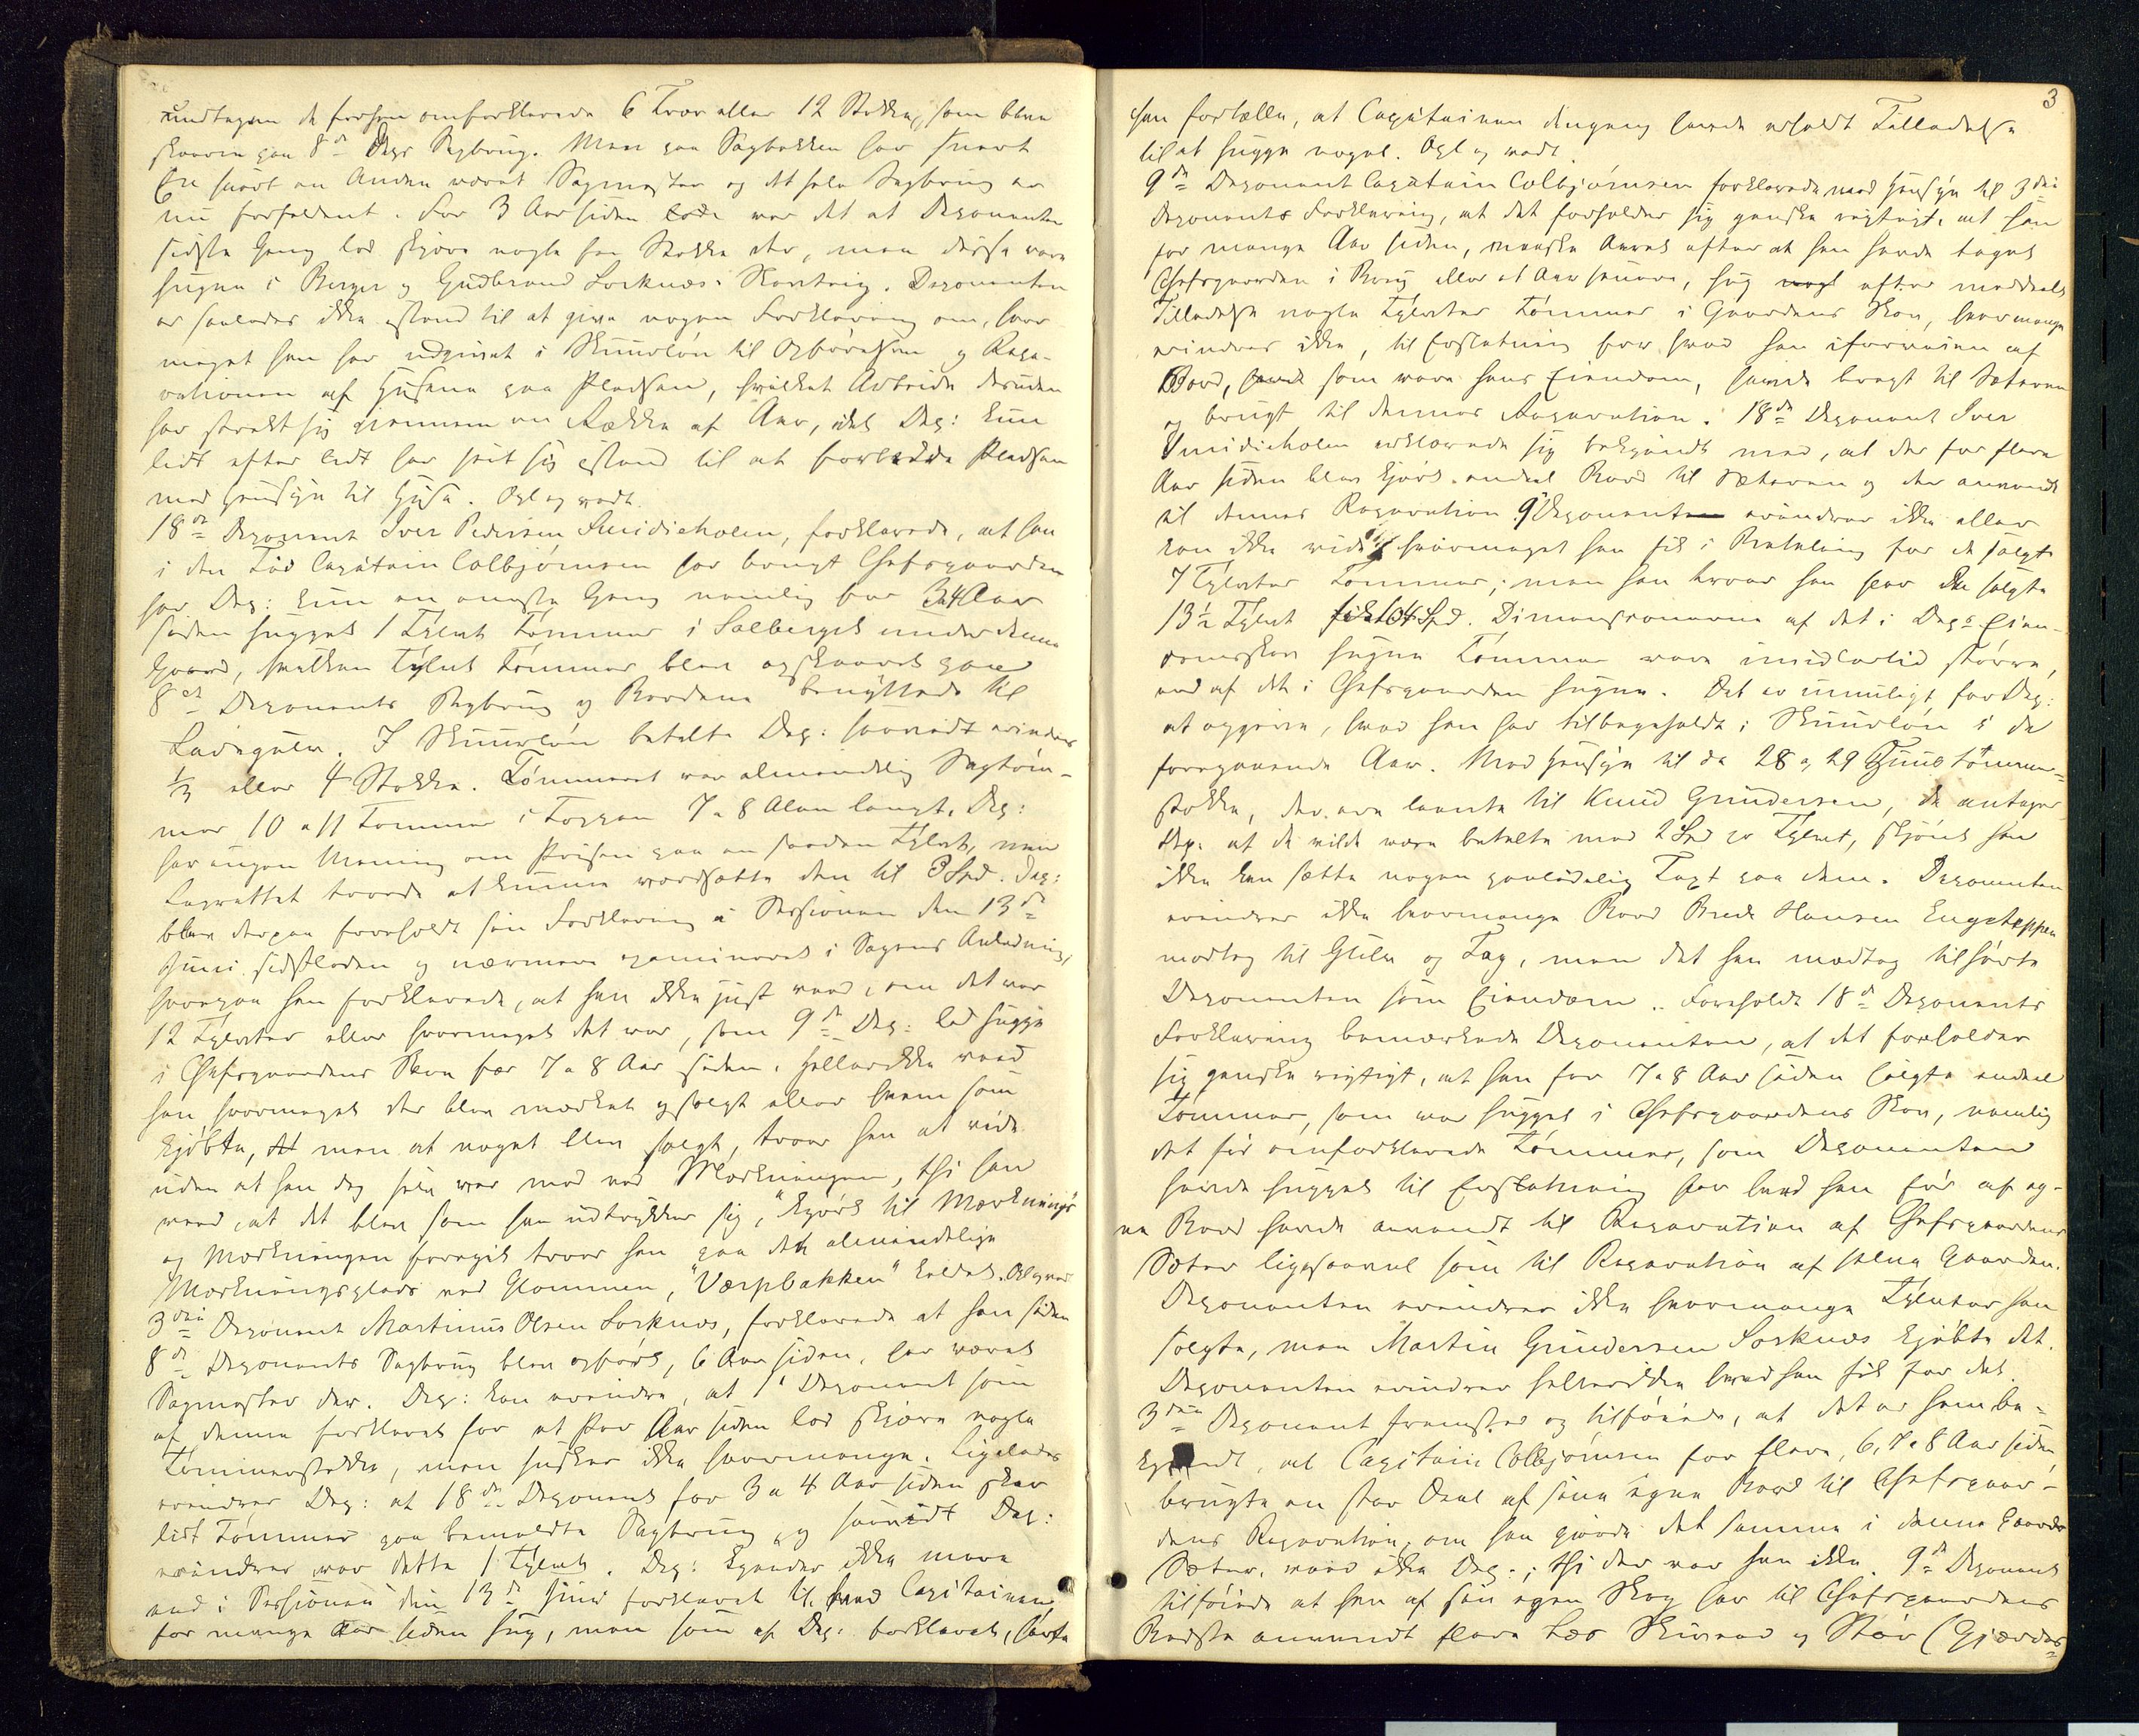 undtagen de forhen omforklarede 6 Trær eller 12 Stokke, som blev
skaaren paa 8de Deps Sagbrug. Men paa Sagbakken har snart
En snart en Anden været Sagmester og det hele Sagbrug er
nu forfaldent. For 3 Aar siden var det at Deponenten
sidste Gang lod skjære nogle faa Stokke der, men disse vare
hugne i Berger og Gudbrand Sorknæs's Havning. Deponenten
er saaledes ikke istand til at give nogen Forklaring om, hvor
meget han har udgivet i Skuurløn til Opførelsen og Repa-
rationen af Husene paa Pladsen, hvilket Arbeide desuden
har strakt sig gjennem en Række af Aar, idet Dep: kun
lidt efter lidt har seet sig istand til at forbedre Pladsen
med Hensyn til Huse. Opl og vedt.
18de Deponent Iver Pedersen Smidieholen, forklarede, at han
i den Tid Capitain Colbjørnsen har brugt Chefsgaarden
har Dep: kun en eneste Gang nemlig for 3 a 4 Aar
siden hugget 1 Tylvt Tømmer i Solberget under denne
Gaard, hvilken Tylvt Tømmer blev opskaaret paa
8de Deponents Sagbrug og Bordene benyttede til
Ladegulv. I Skuurløn betalte Dep: saavidt erindres
1/3 eller 4 Stokke. Tømmeret var almindelig Sagtøm-
mer 10 a 11 Tommer i Toppen 7 a 8 Alen langt. Dep:
har ingen Mening om Prisen paa en saadan Tylvt, men
Lagrettet troede at kunne værdsætte den til 3 Spd. Dep:
blev derpaa foreholdt sin Forklaring i Sessionen den 13de
Juni sidstleden og nærmere examineret i Sagens Anledning,
hvorpaa han forklarede, at han ikke just veed, om det var
12 Tylvter eller hvormeget det var, som 9de Dep: lod hugge
i Chefsgaardens Skov for 7 a 8 Aar siden. Hellerikke veed
han, hvormeget der blev mærket og solgt eller hvem som
kjøbte, men at noget blev solgt, troer han at vide
uden at han dog selv var med ved Mærkningen, thi han
veed, at det blev som han udtrykker sig, "kjørt til Mærkning"
og Mærkningen foregik troer han paa den almindelige
Mærkningsplads ved Glommen, "Værpbakken" kaldet. Opl og ved
3die Deponent Martinus Olsen Sorknæs, forklarede at han siden
8de Deponents Sagbrug blev opført, 6 Aar siden, har været
Sagmester der. Dep: kan erindre, at 1' Deponent som
af denne forklaret for et Par Aar siden lod skjære nogle
Tømmerstokke, men husker ikke hvormange. Ligeledes
erindrer Dep: at 18de Deponent for 3 a 4 Aar siden skar
lidt Tømmer paa bemeldte Sagbrug og saavidt Dep:
erindrer var dette 1 Tylvt. Dep: kjender ikke mere
end i Sessionen den 13de Juni forklaret til hvad Capitainen
for mange Aar siden hug, men som af Dep: forklaret, hørte
3
han fortælle, at Capitainen dengang havde erholdt Tilladelse
til at hugge noget. Opl og vedt.
9de Deponent Capitain Colbjørnsen forklarede med Hensyn til 3die
Deponents Forklaring, at det forholder sig ganske rigtigt, at han
for mange Aar siden, maaske Aaret efter at han havde taget
Chefsgaarden i Brug eller et Aar senere, hug efter meddeelt
Tilladelse nogle Tylvter Tømmer i Gaardens Skov, hvormange
erindres ikke, til Erstatning for hvad han iforveien af
Bord, som vare hans Eiendom, havde bragt til Sæteren
og brugt til dennes Reparation. 18de Deponent Iver
Smidieholen erklærede sig bekjendt med, at der for flere
Aar siden blev kjørt endeel Bord til Sæteren og der anvendt
til dennes Reparation. 9' Deponent erindrer ikke eller
kan ikke vide hvormeget han fik i Betaling for de solgte
7 Tylvter Tømmer; men han troer han for de solgte
13½ Tylvt fik 104 Spd. Dimensionerne af det i Deps Eien-
domsskov hugne Tømmer vare imidlertid større,
end af det i Chefsgaarden hugne. Det er umuligt for Dep:
at opgive, hvad han har tilbageholdt i Skuurløn i de
foregaaende Aar. Med Hensyn til de 28 a 29 Huustømmer-
stokke, der ere laante til Knud Gundersen, da antager
Dep: at de vilde være betalte med 2 Spd pr Tylvt, skjønt han
ikke kan sætte nogen paalidelig Taxt paa dem. Deponenten
erindrer ikke hvormange Bord Brede Hansen Engsteppen
modtog til Gulv og Tag, men det han modtog tilhørte
Deponenten som Eiendom. Foreholdt 18de Deponents
Forklaring bemærkede Deponenten, at det forholder
sig ganske rigtigt, at han for 7 a 8 Aar siden solgte endeel
Tømmer, som var hugget i Chefsgaardens Skov, nemlig
det før omforklarede Tømmer, som Deponenten
havde hugget til Erstatning for hvad han før af eg-
ne Bord havde anvendt til Reparation af Chefsgaardens
Sæter ligesaavel som til Reparation af selve Gaarden.
Deponenten erindrer ikke hvormange Tylvter han
solgte, men Martin Gundersen Sorknæs kjøbte det.
Deponenten erindrer hellerikke hvad han fik for det.
3die Deponent fremstod og tilføiede, at det er ham be-
kjendt, at Capitain Colbjørnsen for flere, 6, 7 a 8 Aar siden
brugte en stor Deel af sine egne Bord til Chefsgaar-
dens Reparation, om han gjorde det samme i denne Gaards
Sæter, veed ikke Dep.; thi der var han ikke. 9de Deponent
tilføiede at han af sin egen Skog har til Chefsgaardens
Bedste anvendt flere Læs Skier og Stør (Gjærdes-